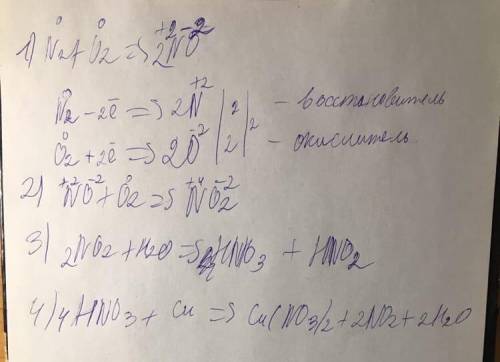 1) N₂⁰ + O₂⁰ => 2N⁺²O⁻²
N₂⁰ - 2ē => 2N⁺² | 2 | - восстановитель
O₂⁰ + 2ē => 2O⁻² | 2 | 2 - окислитель
2) N⁺²O⁻² + O₂⁰ => N⁺⁴O₂⁻²
3) 2NO₂ + H₂O => HNO₃ + HNO₂
4) 4HNO₃ + Cu => Cu(NO₃)₂ + 2NO₂ + 2H₂O